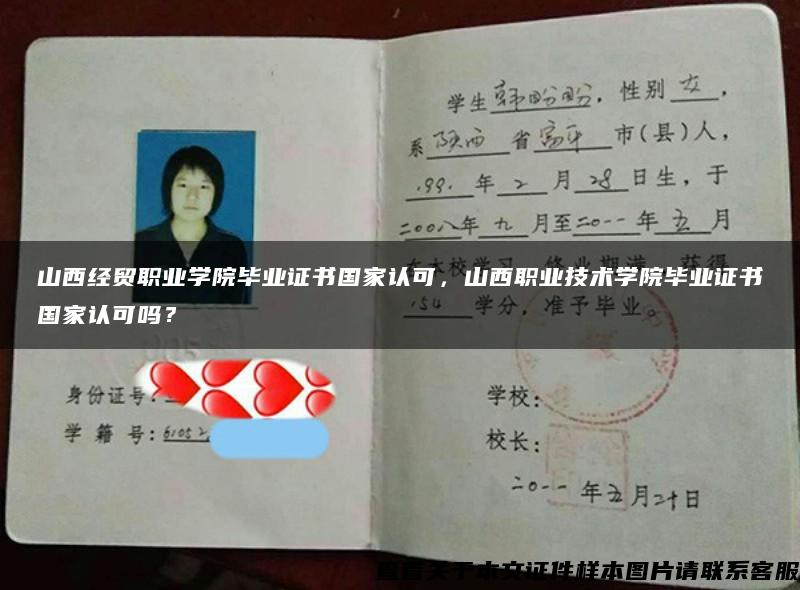 学生韩盼盼，性别女，
系陕西省富平市(县)人，
1991年2月28日生，于
二00八年九月至二0一一年五月
在本校学习，修业期满，获得
154学分，准予毕业。
山西经贸职业学院毕业证书国家认可，山西职业技术学院毕业证书
国家认可吗？
身份证号：
学籍号：61052
学校：
校长：
二0一一年五月二十日
查看关于本文证件样本图片请联系客服